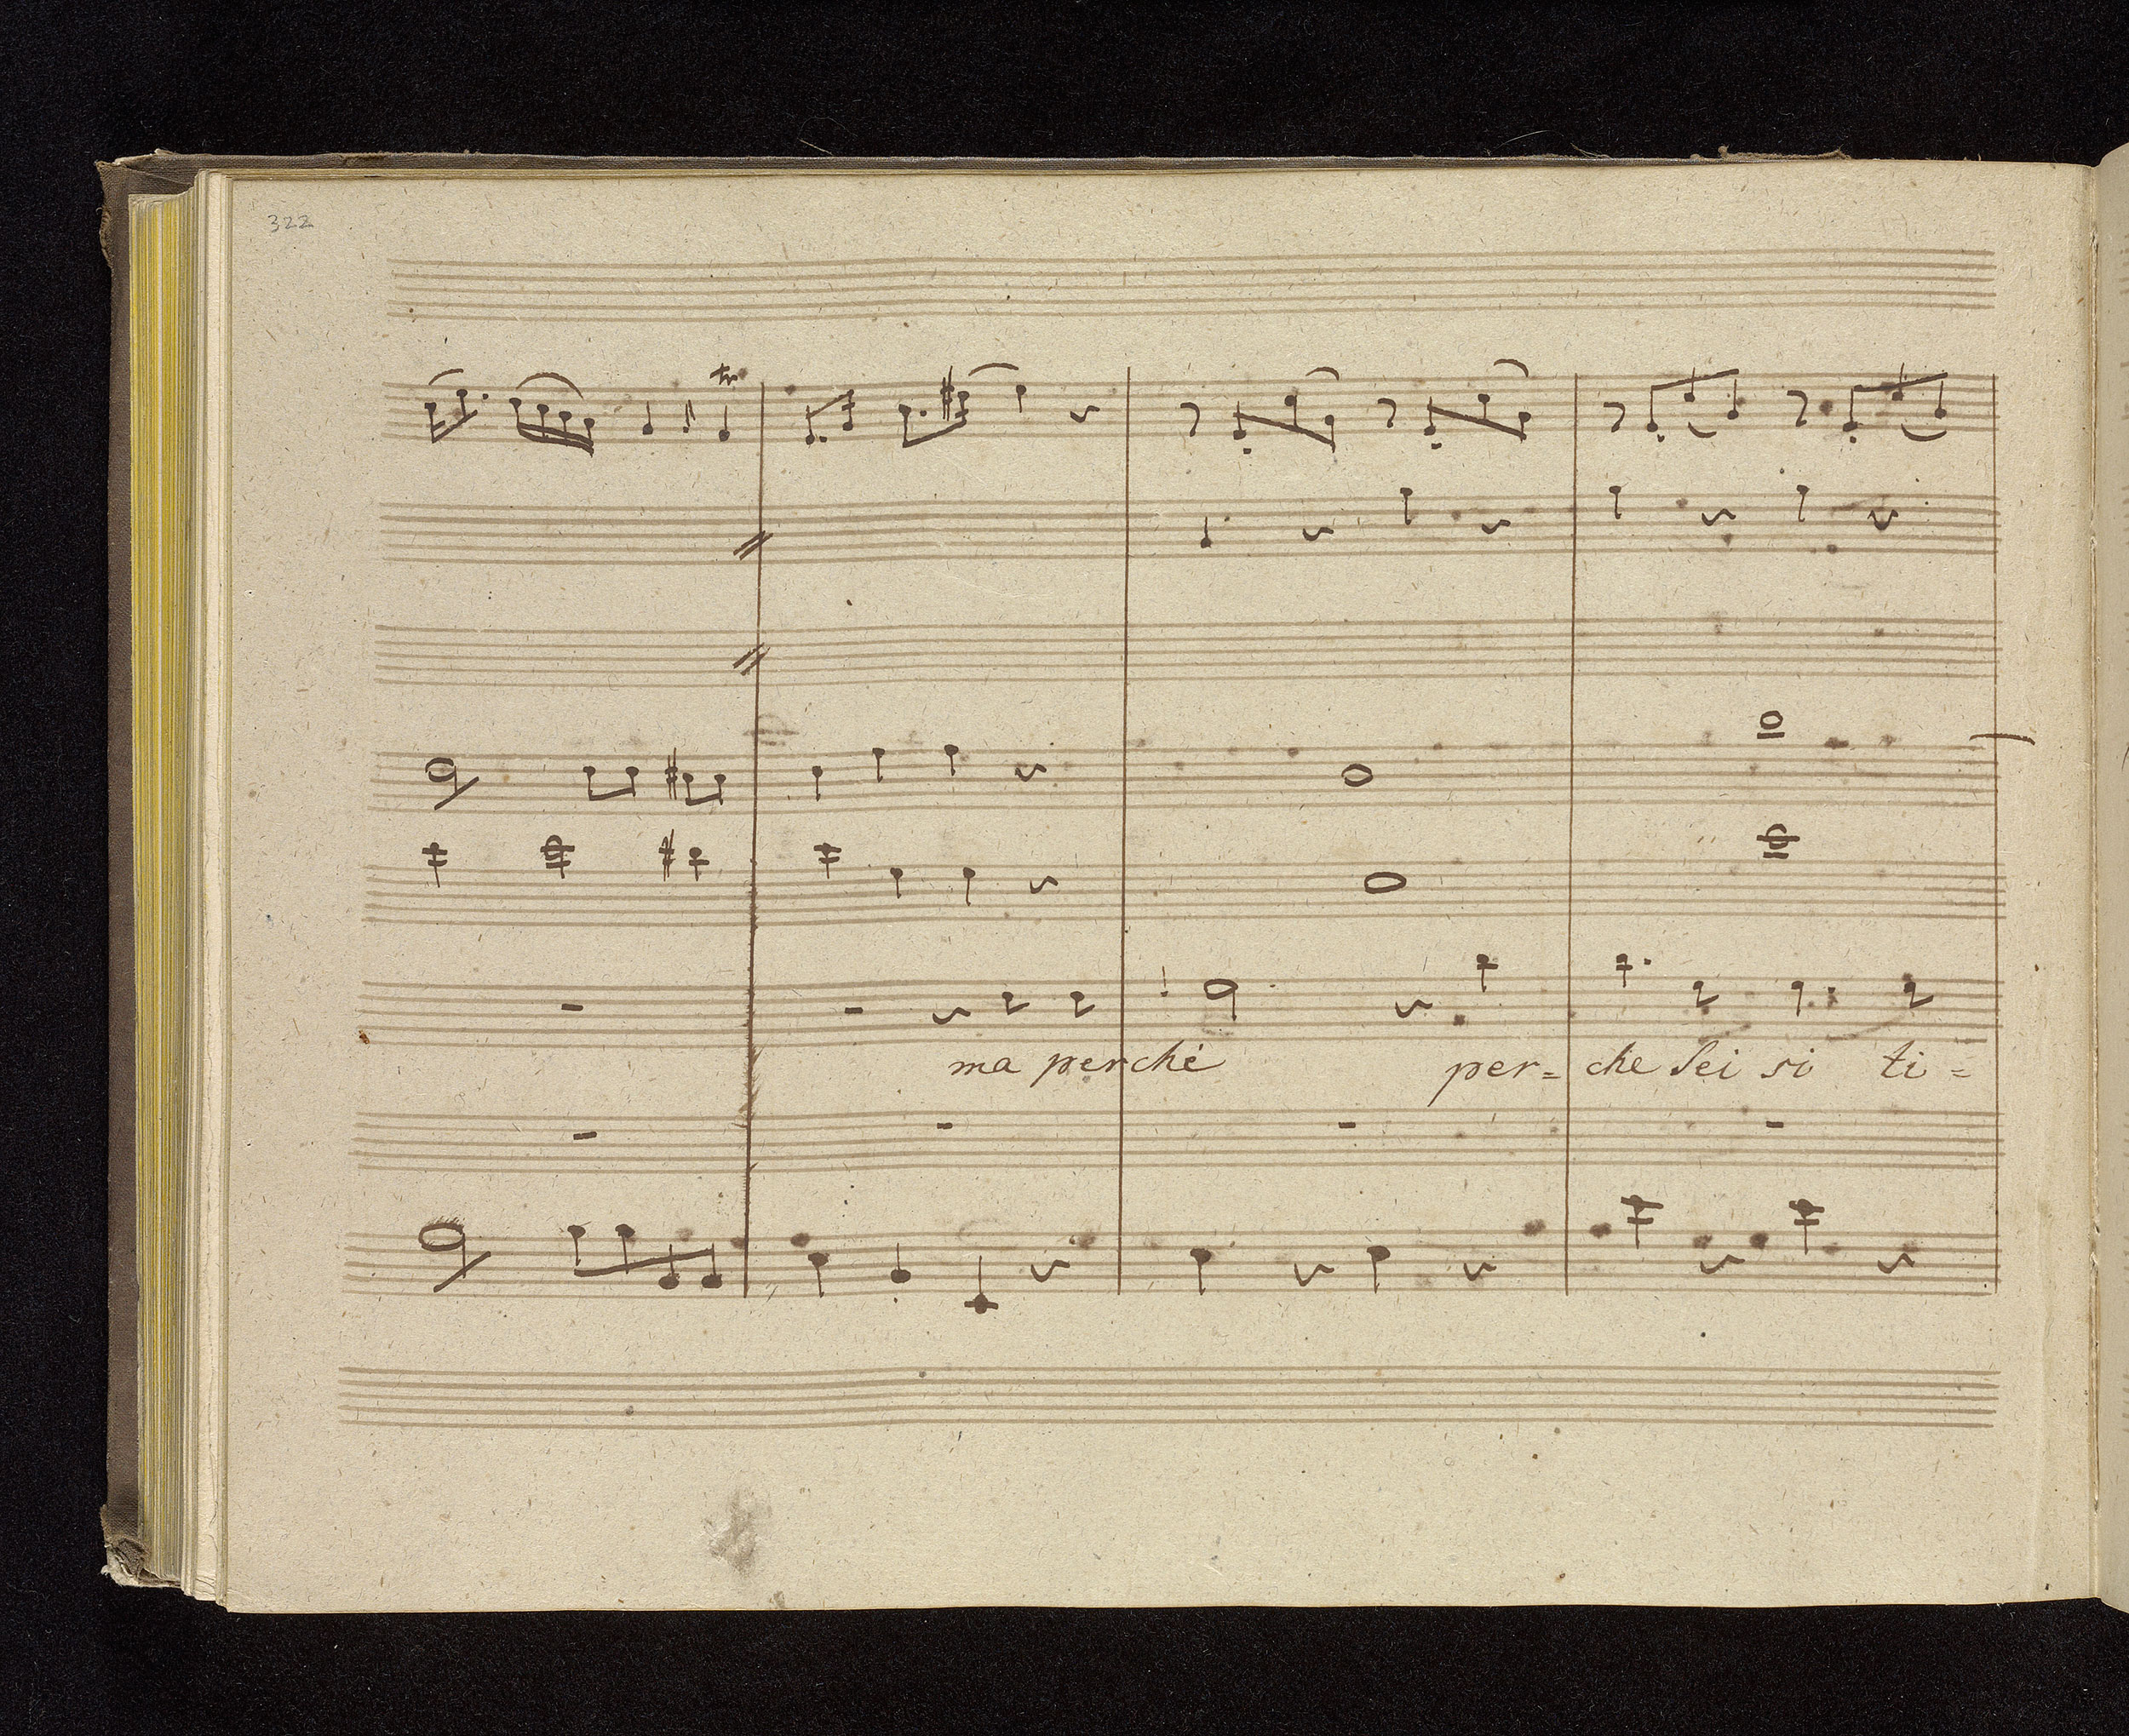 322
tr
ma perché per= che sei si ti=